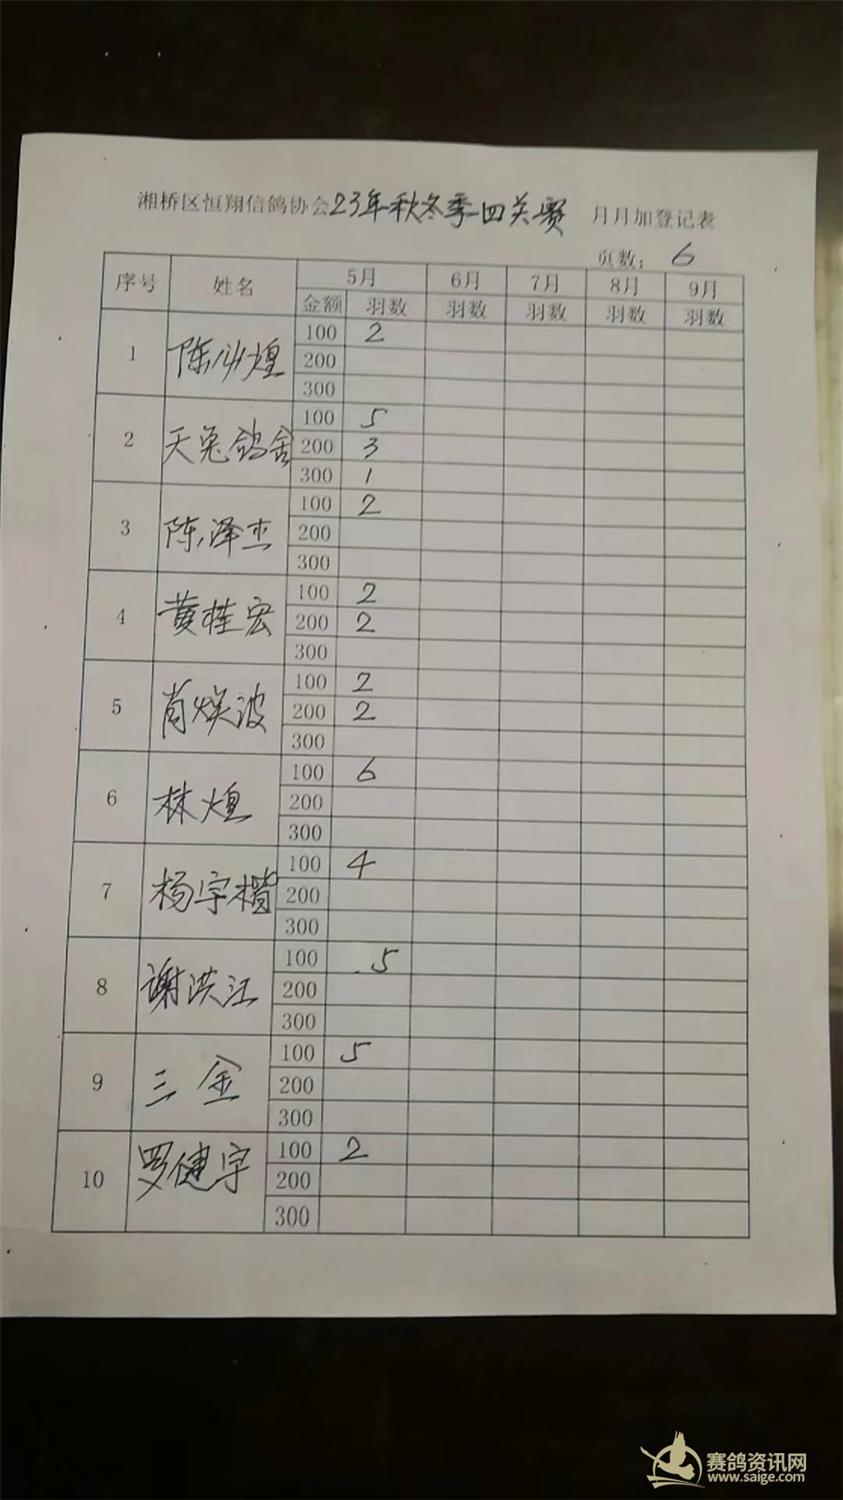 湘桥区恒翔信鸽协会23年秋冬季四关赛 月月加登记表
页数: 6
序号 姓名 5月 6月 7月 8月 9月
金额 羽数 羽数 羽数 羽数 羽数
1 陈 煌 100 2
200
300
2 天兔鸽舍 100 5
200 3
300 1
3 陈泽杰 100 2
200
300
4 黄桂宏 100 2
200 2
300
5 肖焕波 100 2
200 2
300
6 林煌 100 6
200
300
7 杨宇楷 100 4
200
300
8 谢洪江 100 5
200
300
9 三金 100 5
200
300
10 罗健宇 100 2
200
300
赛鸽资讯网
www.saige.com